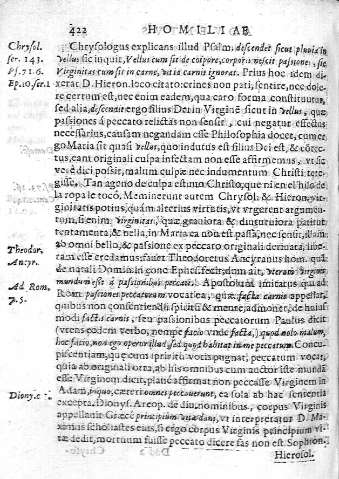 422 HOMILIAE
Chrysol. ser. 143. Ps. 71. 6. Ep. 10. ser. 1
Chrysologus explicans illud Psalm, descendet sicut pluvia in
vellus sic inquit, Vellus cum sit de corpore, corporis nescit passiones, sic
Virginitas cum sit in carne, vitia carnis ignorat. Prius hoc idem di-
xerat D. Hieron. loco citato:
te certum est, nec enim eadem, qua caro forma constituitur,
sed alia, descendet ergo filius Dei in Virginē sicut in vellus, que
passiones à peccato relictas non sensit, cui negatur effectus
necessarius, causam negandam esse Philosophia docet, cum er-
go Maria sit quasi vellus, quo indutus est filius Dei est, &
cant originali culpa infectam non esse affirmemus, ut sic
vere dici possit, malum culpæ nec indumentum Christi teti-
gisse. Tan ageno de culpa est uno Christo, que ni en el hilo de
la ropa le tocó. Meminerunt autem Chrysol. & Hieron.
potius, quàm alterius virtutis, ut urgerent argumen-
tum, si enim virginitas, quæ graviora & diuturniora patitur
tentamenta, & bella, in Maria ea non est passa, nec sensit,
ab omni bello, & passione ex peccato originali derivata, libe-
Theodor. Ancyr.
ram esse credamus: fatet Theodoretus Ancyranus hom.
de natali Domini in conc. Ephes. fecit, dum ait, uterum virginis
mundum esse à passionibus peccati. Apostolum imitatus
Ad Rom. 7. 5.
Rom. passiones peccatorum vocatica, quæ facta carnis appellat,
quibus non consensit spiritu & mente, admonet, de huius-
modi factis carnis, seu passionibus peccatorum Paulus dicit
(utens eodem verbo, nempe facio unde facta,) quod nolo malum,
hoc facio, non ego operor illud sed quod habitat in me peccatum. Concu-
piscentiam, quæ cum spiritu votis pugnat; peccatum vocat,
quia ab originali orta, ab his omnibus cum auctor iste mundā
esse Virginem dicit, planè affirmat non peccasse Virginem in
Dionys.
Adam, quo, cæteri omnes peccaverunt, ea sola ab hac sententia
excepta. Dionys. Areop. de diu. nominibus, corpus Virginis
appellant Græcè principium vitæ dans, ut interpretatur D. Ma-
ximus scholiastes eius, si ergo corpus Virginis principium vi-
tæ dedit, mortuum fuisse peccato dicere fas non est Sophron.
Hierosol.